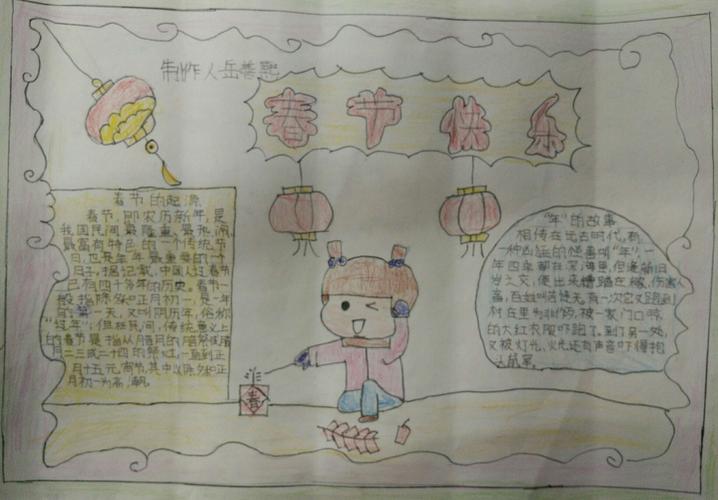 制作人岳善熙
春节快乐
春节的起源
春节,即农历新年,是
我国民间最隆重、最热闹、
最富有特色的一个传统节
日,也是年年最重要的一个
日子,据记载,中国人过春节
已有四千多年的历史。春节一
般指除夕和正月初一,是一年
的第一天,又叫阴历年,俗称
"过年";但在民间,传统意义上
的春节是指从腊月的腊祭或腊
月二三或二十四的祭灶,一直到正
月十五元宵节,其中以除夕和正
月初一为高潮。
春
"年"的故事
相传在远古时代,有
一种凶猛的怪兽叫"年",一
年四来都在深海里,但逢新旧
岁之交,便出来糟踏庄稼,伤害人
畜,百姓叫苦连天。有一次它又跑到
村庄里为非作歹,被一家门口晾
的大红衣服吓跑了,到了另一处,
又被灯光、火光还有声音吓得抱
头鼠窜。